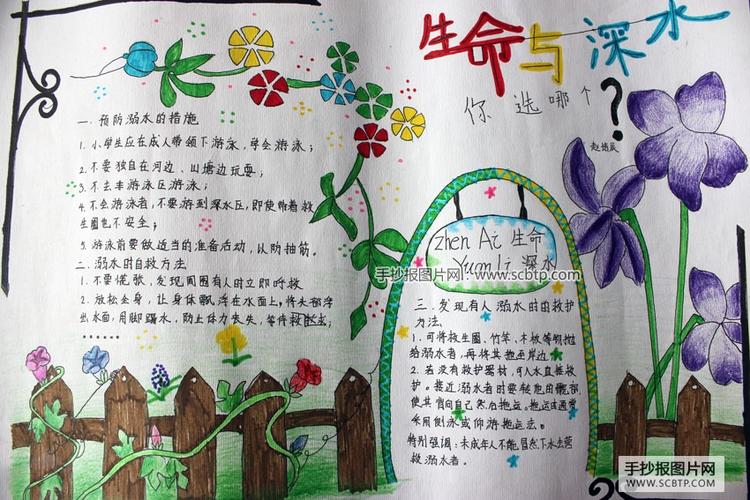 生命与深水
你选哪个？
赵培成
一. 预防溺水的措施
1. 小学生应在成人带领下游泳，学会游泳；
2. 不要独自在河边、山塘边玩耍；
3. 不去非游泳区游泳；
4. 不会游泳者，不要游到深水区，即使带着救
生圈也不安全；
5. 游泳前要做适当的准备活动，以防抽筋。
二. 溺水时自救方法
1. 不要慌张，发现周围有人时立即呼救
2. 放松全身，让身体飘浮在水面上，将头部浮
出水面，用脚踢水，防止体力丧失，等待救援；
······
zhen Ai 生命
Yuan Li 深水
手抄报图片网·www.scbtp.com
三. 发现有人溺水时的救护
方法
1. 可将救生圈、竹竿、木板等物抛
给溺水者，再将其拖至岸边；
2. 若没有救护器材，可入水直接救
护。接近溺水者时要转动他的髋部，
使其背向自己然后拖运。拖运时通常
采用侧泳或仰游拖运法。
特别强调：未成年人不能冒然下水去营
救溺水者。
手抄报图片网
WWW.SCBTP.COM